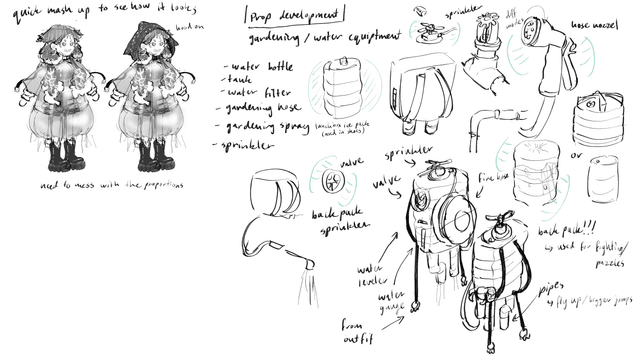 quick mash up to see how it looks
hood on
need to mess with the proportions
Prop development
gardening / water equiptment
- water bottle
- tank
- water filter
- gardening hose
- gardening spray
- sprinkler
sprinkler
diff
hose nozzel
valve
back pack
sprinkler
sprinkler
valve
fire hose
water
leveler
water
gauge
from
outfit
or
back pack!!!
↳ used for fighting/
puzzles
pipes
↳ fly up / bigger jumps